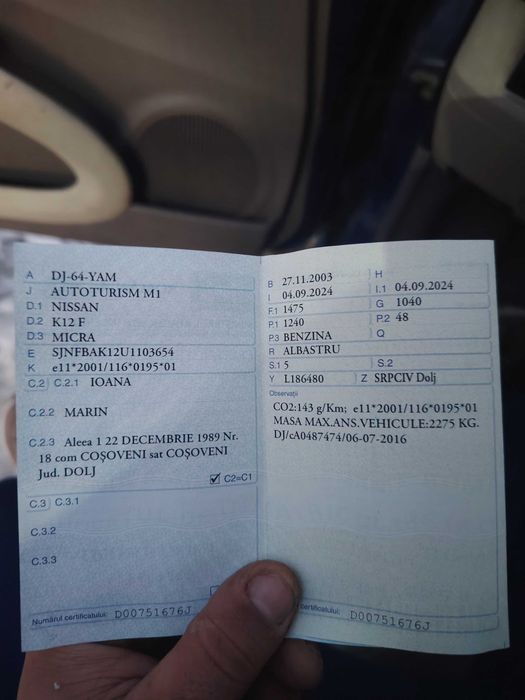 A DJ-64-YAM
J AUTOTURISM M1
D.1 NISSAN
D.2 K12 F
D.3 MICRA
E SJNFBAK12U1103654
K e11*2001/116*0195*01
C.2 C.2.1 IOANA
C.2.2 MARIN
C.2.3 Aleea 1 22 DECEMBRIE 1989 Nr.
18 com COȘOVENI sat COȘOVENI
Jud. DOLJ
C2=C1
C.3 C.3.1
C.3.2
C.3.3
Numărul certificatului: D00751676J
B 27.11.2003 H
I 04.09.2024 I.1 04.09.2024
F.1 1475 G 1040
P.1 1240 P.2 48
P.3 BENZINA Q
R ALBASTRU
S.1 5 S.2
Y L186480 Z SRPCIV Dolj
Observații
CO2:143 g/Km; e11*2001/116*0195*01
MASA MAX.ANS.VEHICULE:2275 KG.
DJ/cA0487474/06-07-2016
certificatului: D00751676J